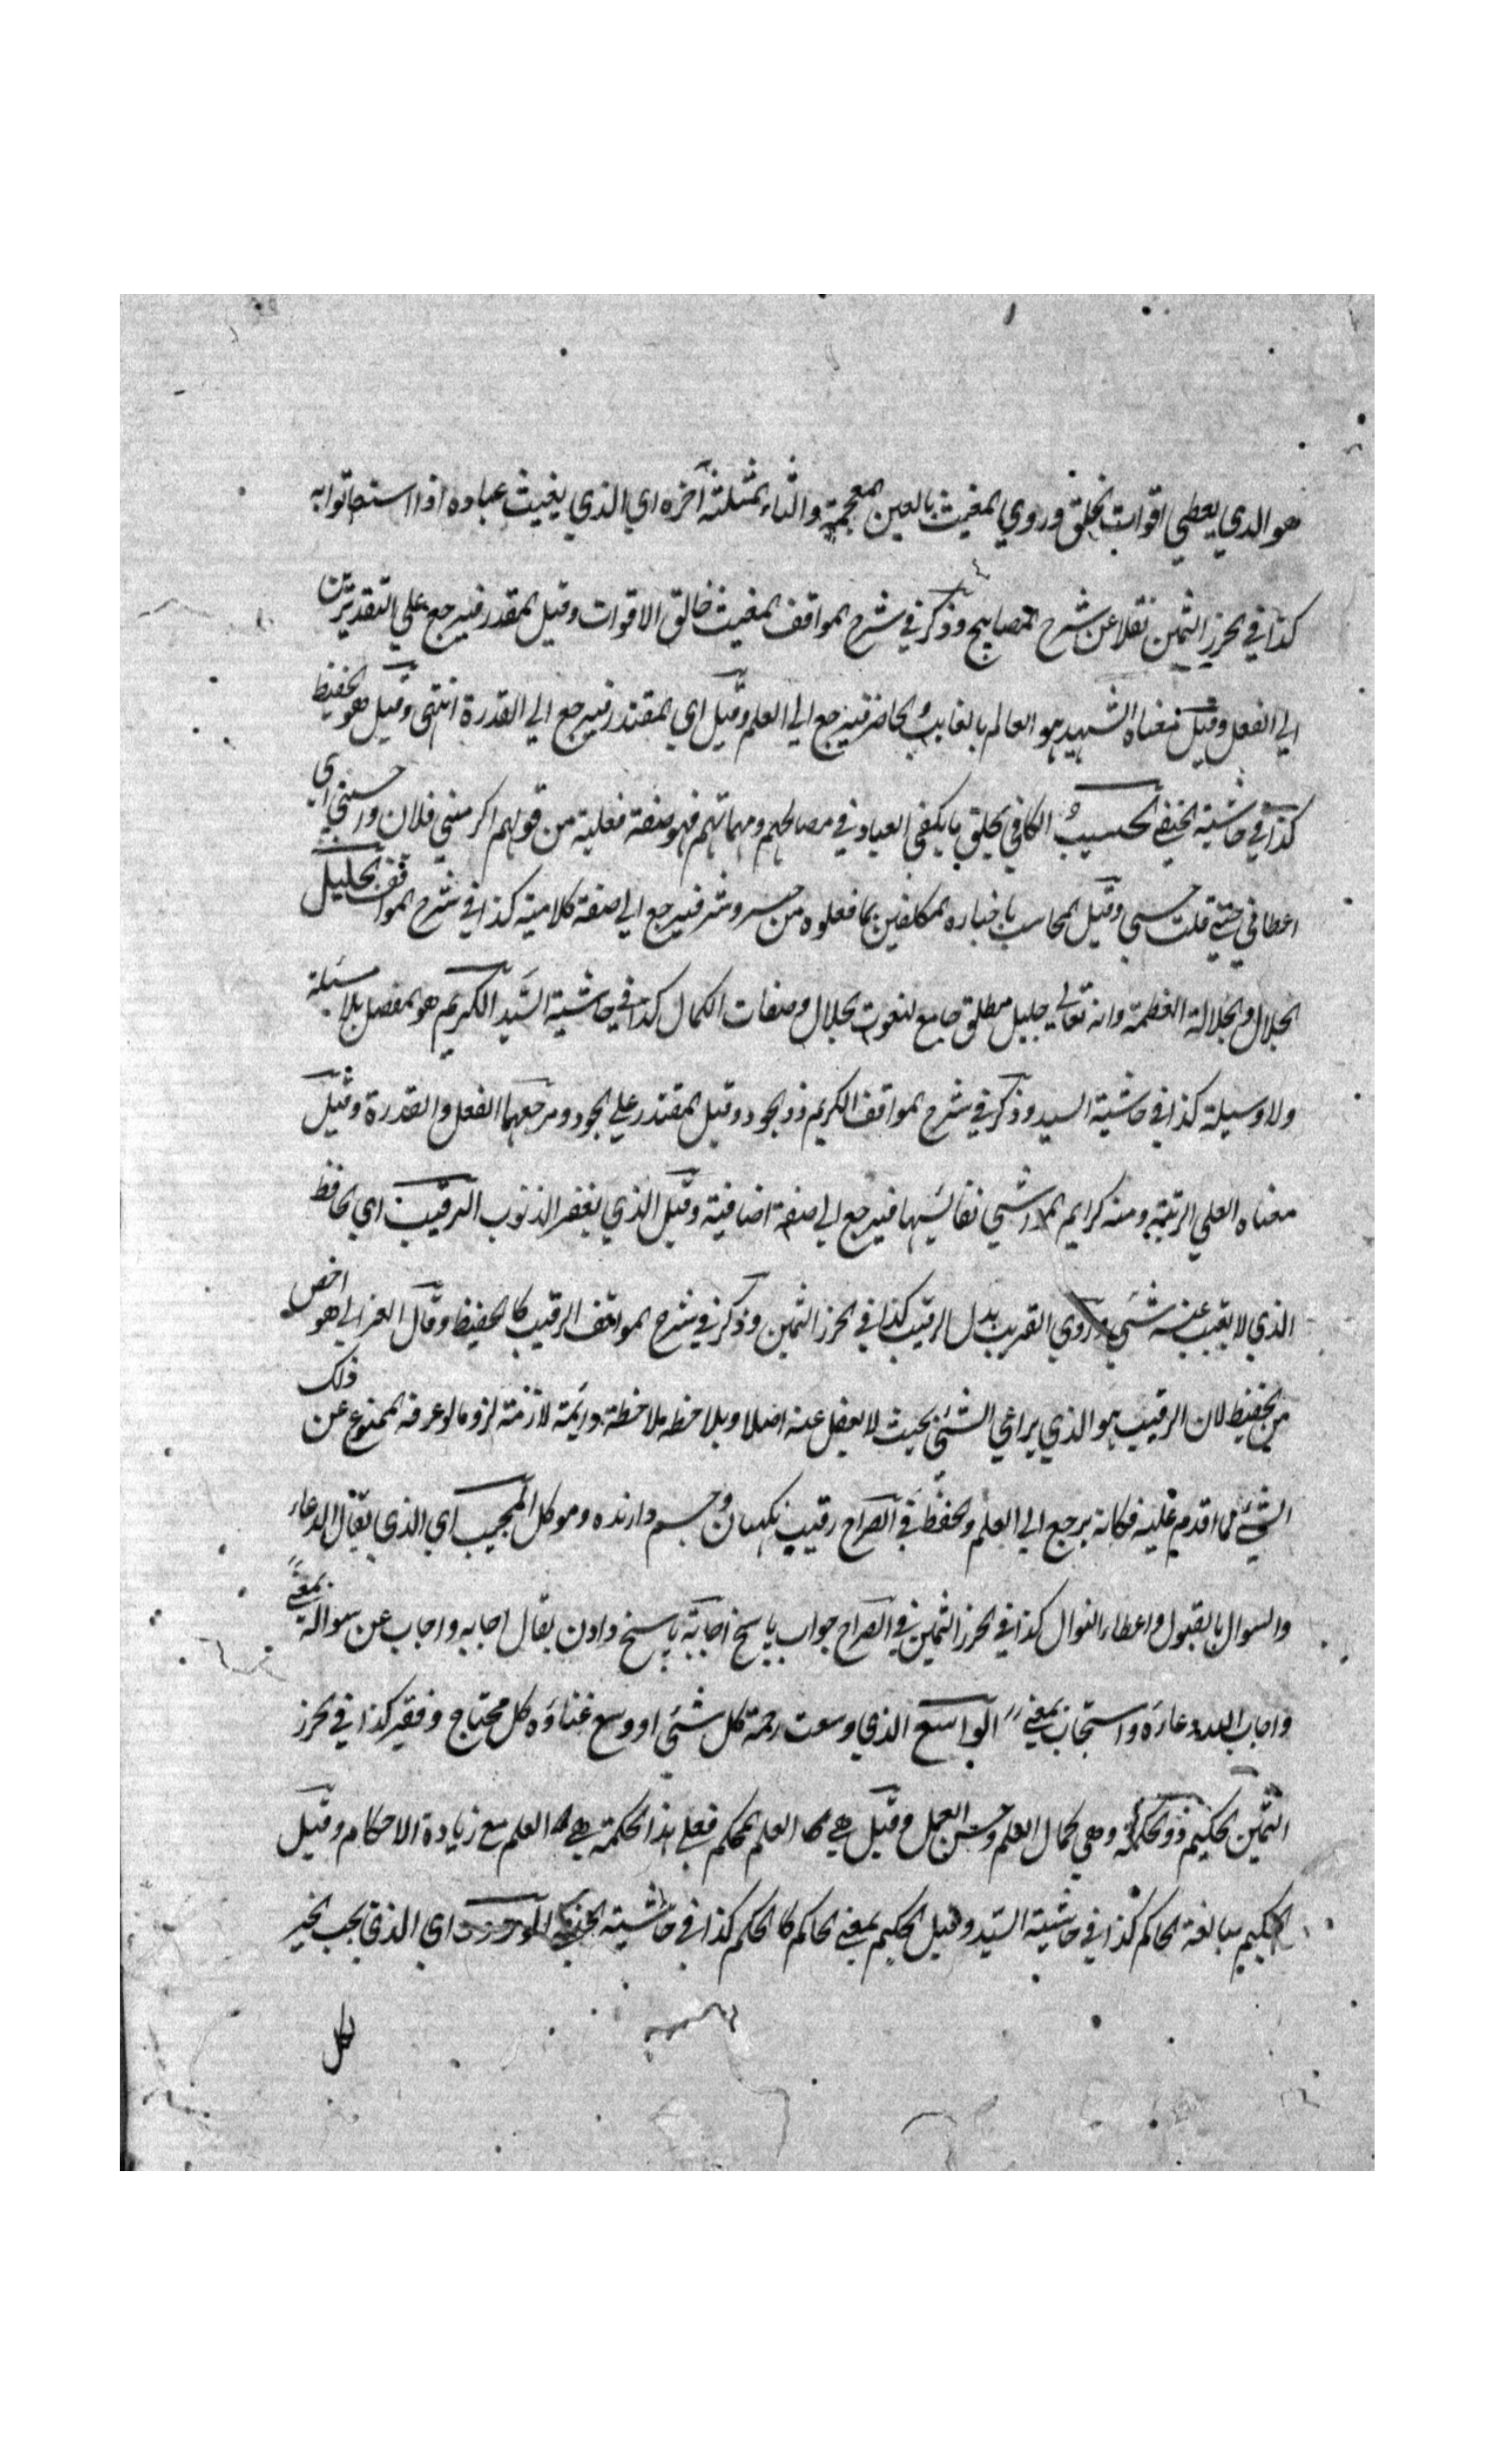 هو الذي يعطي اقوات الخلق وروي المغيث بالغين المعجمة والثاء المثلثة آخره اي الذي يغيث عباده اذا استغاثوا به
كذا في الحرز الثمين نقلا عن شرح المصابيح وذكر في شرح المواقف المغيث خالق الاقوات وقيل المقدر فيرجع على التقديرين
الي الفعل وقيل معناه الشهيد هو العالم بالغايب والحاضر فيرجع الي العلم وقيل اي المقتدر فيرجع الي القدرة انتهى وقيل هو الحفيظ
كذا في حاشية الحنفي الحسيب الكافي يخلق ما يكفي العباد في مصالحهم ومهماتهم فهو صفة فعلية من قولهم اكرمني فلان واحسبني اي
اعطاني حتى قلت حسبي وقيل المحاسب باخباره المكلفين بما فعلوه من خير وشر فيرجع الي صفة كلامية كذا في شرح المواقف الجليل
الجلال والجلالة العظمة وانه تعالي جليل مطلق جامع لنعوت الجلال وصفات الكمال كذا في حاشية السيد الكريم هو المفضل بلا مسئلة
ولا وسيلة كذا في حاشية السيد وذكر في شرح المواقف الكريم ذو الجود وقيل المقتدر علي الجود ومرجعهما الفعل والقدرة وقيل
معناه العلي الرتبة ومنه كرايم المواشي نفائسها فيرجع الي صفة اضافية وقيل الذي يغفر الذنوب الرقيب اي الحافظ
الذي لا يغيب عنه شئ وروي القريب بدل الرقيب كذا في الحرز الثمين وذكر في شرح المواقف الرقيب كالحفيظ وقال الغزالي هو اخص
من الحفيظ لان الرقيب هو الذي يراعي الشئ بحيث لا يغفل عنه اصلا ويلاحظه ملاحظة دايمة لازمة لزوما لو عرفه الممنوع عن ذلك
الشئ لما اقدم عليه فكانه يرجع الي العلم والحفظ في الصراح رقيب نكهبان وچشم دارنده وموكل المجيب اي الذي يقابل الدعاء
والسوال بالقبول واعطاء النوال كذا في الحرز الثمين في الصراح جواب پاسخ اجابة پاسخ دادن يقال اجابه واجاب عن سواله بمعنى
واجاب الله دعاءه واستجاب بمعنى الواسع الذي وسعت رحمة كل شئ او وسع غناؤه كل محتاج وفقير كذا في الحرز
الثمين الحكيم ذو الحكمة وهي كمال العلم وحسن العمل وقيل هي العلم المحكم فعلى هذا الحكمة هي العلم مع زيادة الاحكام وقيل
الحكيم مبالغة الحاكم كذا في حاشية السيد وقيل الحكيم بمعنى الحاكم كالحكم كذا في حاشية الحنفي الودود اي الذي يحب الخير
لكل